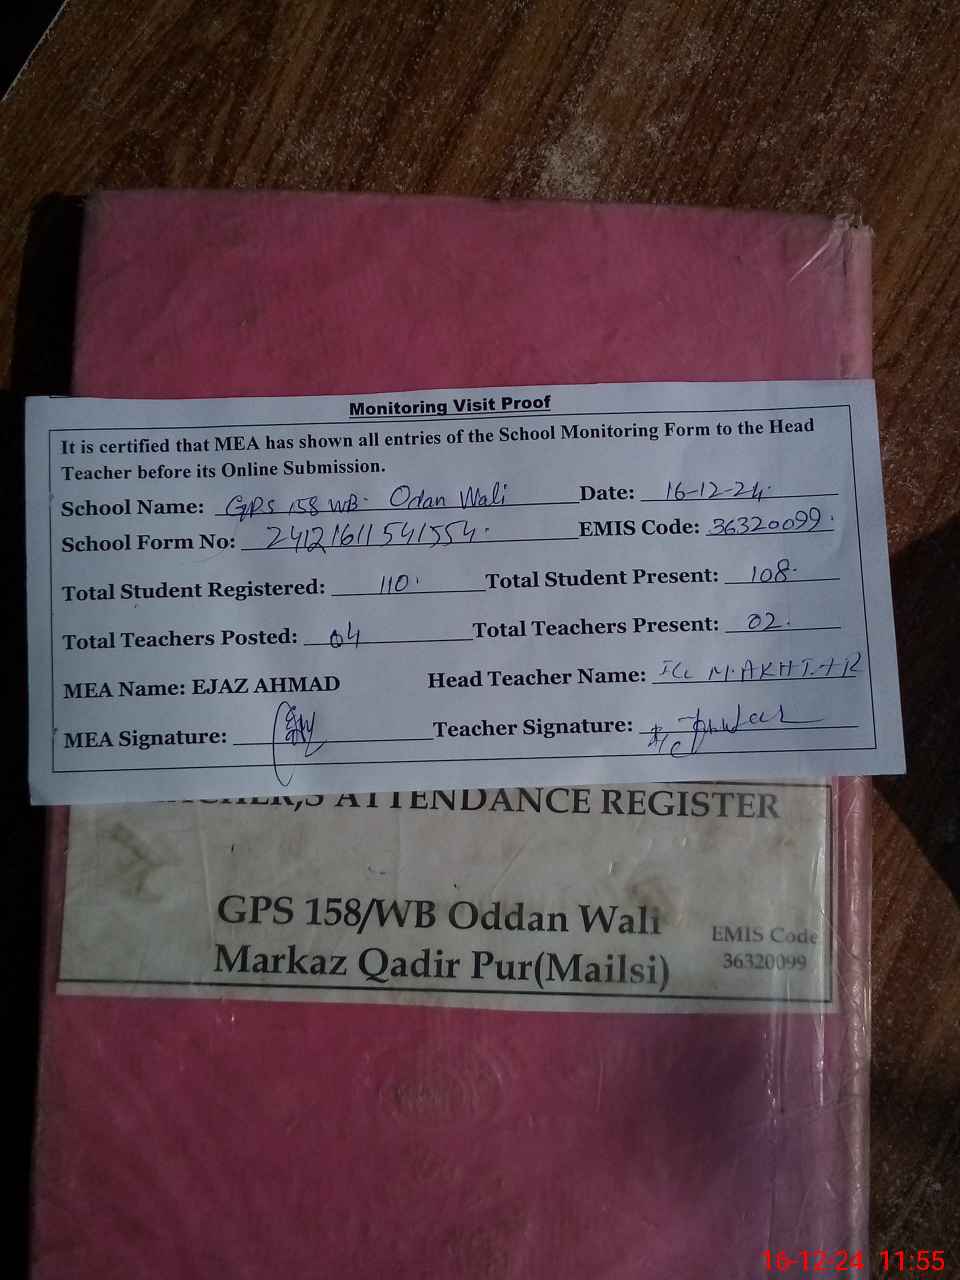 Monitoring Visit Proof
It is certified that MEA has shown all entries of the School Monitoring Form to the Head
Teacher before its Online Submission.
School Name: GPS 158 WB. Odan Wali Date: 16-12-24.
School Form No: 24121611541554. EMIS Code: 36320099.
Total Student Registered: 110. Total Student Present: 108.
Total Teachers Posted: 04 Total Teachers Present: 02.
MEA Name: EJAZ AHMAD Head Teacher Name: M. AKHTAR
MEA Signature: Teacher Signature:
ATTENDANCE REGISTER
GPS 158/WB Oddan Wali
Markaz Qadir Pur(Mailsi)
EMIS Code
36320099
16-12-24 11:55